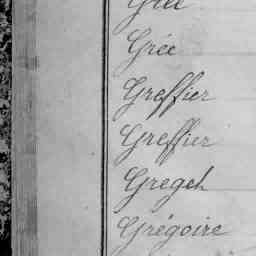 Grée
Grée
Greffier
Greffier
Gregeh
Grégoire